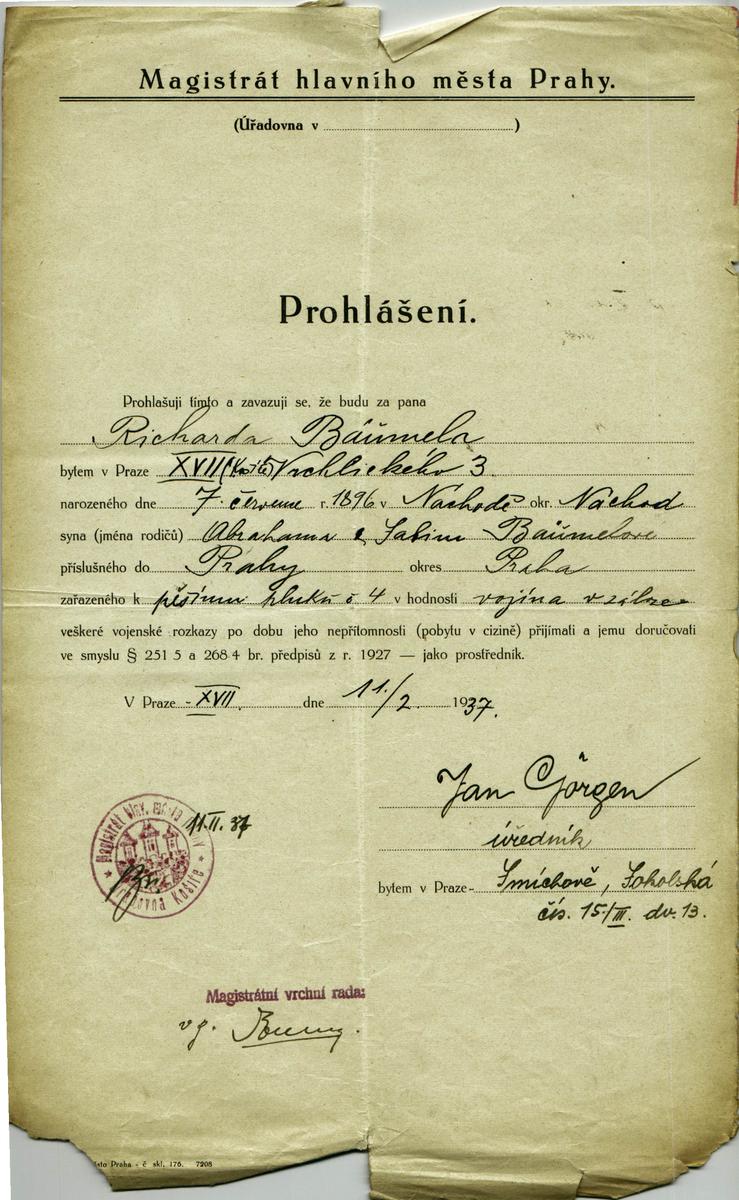 Magistrát hlavního města Prahy.
(Úřadovna v )
Prohlášení.
Prohlašuji tímto a zavazuji se, že budu za pana
Richarda Bäumela
bytem v Praze XVII (Košíře) Vrchlického 3
narozeného dne 7. června r. 1896 v Náchodě okr. Náchod
syna (jména rodičů) Abrahama a Sabiny Bäumelové
příslušného do Prahy okres Praha
zařazeného k pěšímu pluku č 4 v hodnosti vojína v záloze
veškeré vojenské rozkazy po dobu jeho nepřítomnosti (pobytu v cizině) přijímati a jemu doručovati
ve smyslu § 251 5 a 268 4 br. předpisů z r. 1927 — jako prostředník.
V Praze - XVII. dne 11/2. 1937.
Jan Görgen
úředník
bytem v Praze- Smíchově, Sokolská
čís. 15/III. dv. 13.
Magistrát hlav. města Prahy
Úřadovna Košíře
11.II. 37
Magistrátní vrchní rada:
v z.
sto Praha - č skl. 176. 7208